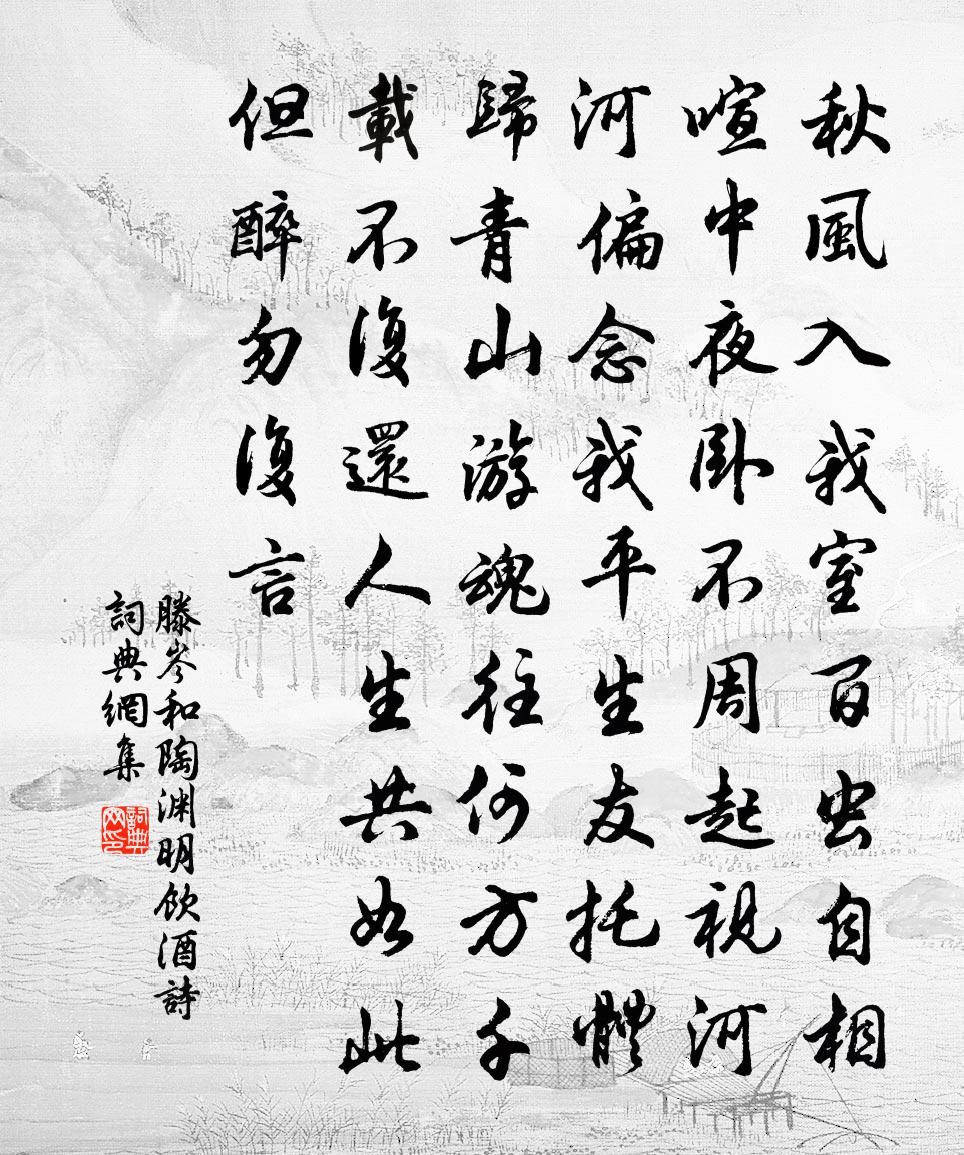 秋風入我室百虫自相
喧中夜卧不周起視河
河偏念我平生友托體
歸青山游魂往何方千
載不復還人生共如此
但醉勿復言
滕岑和陶渊明飲酒詩
詞典網集
詞典
网印